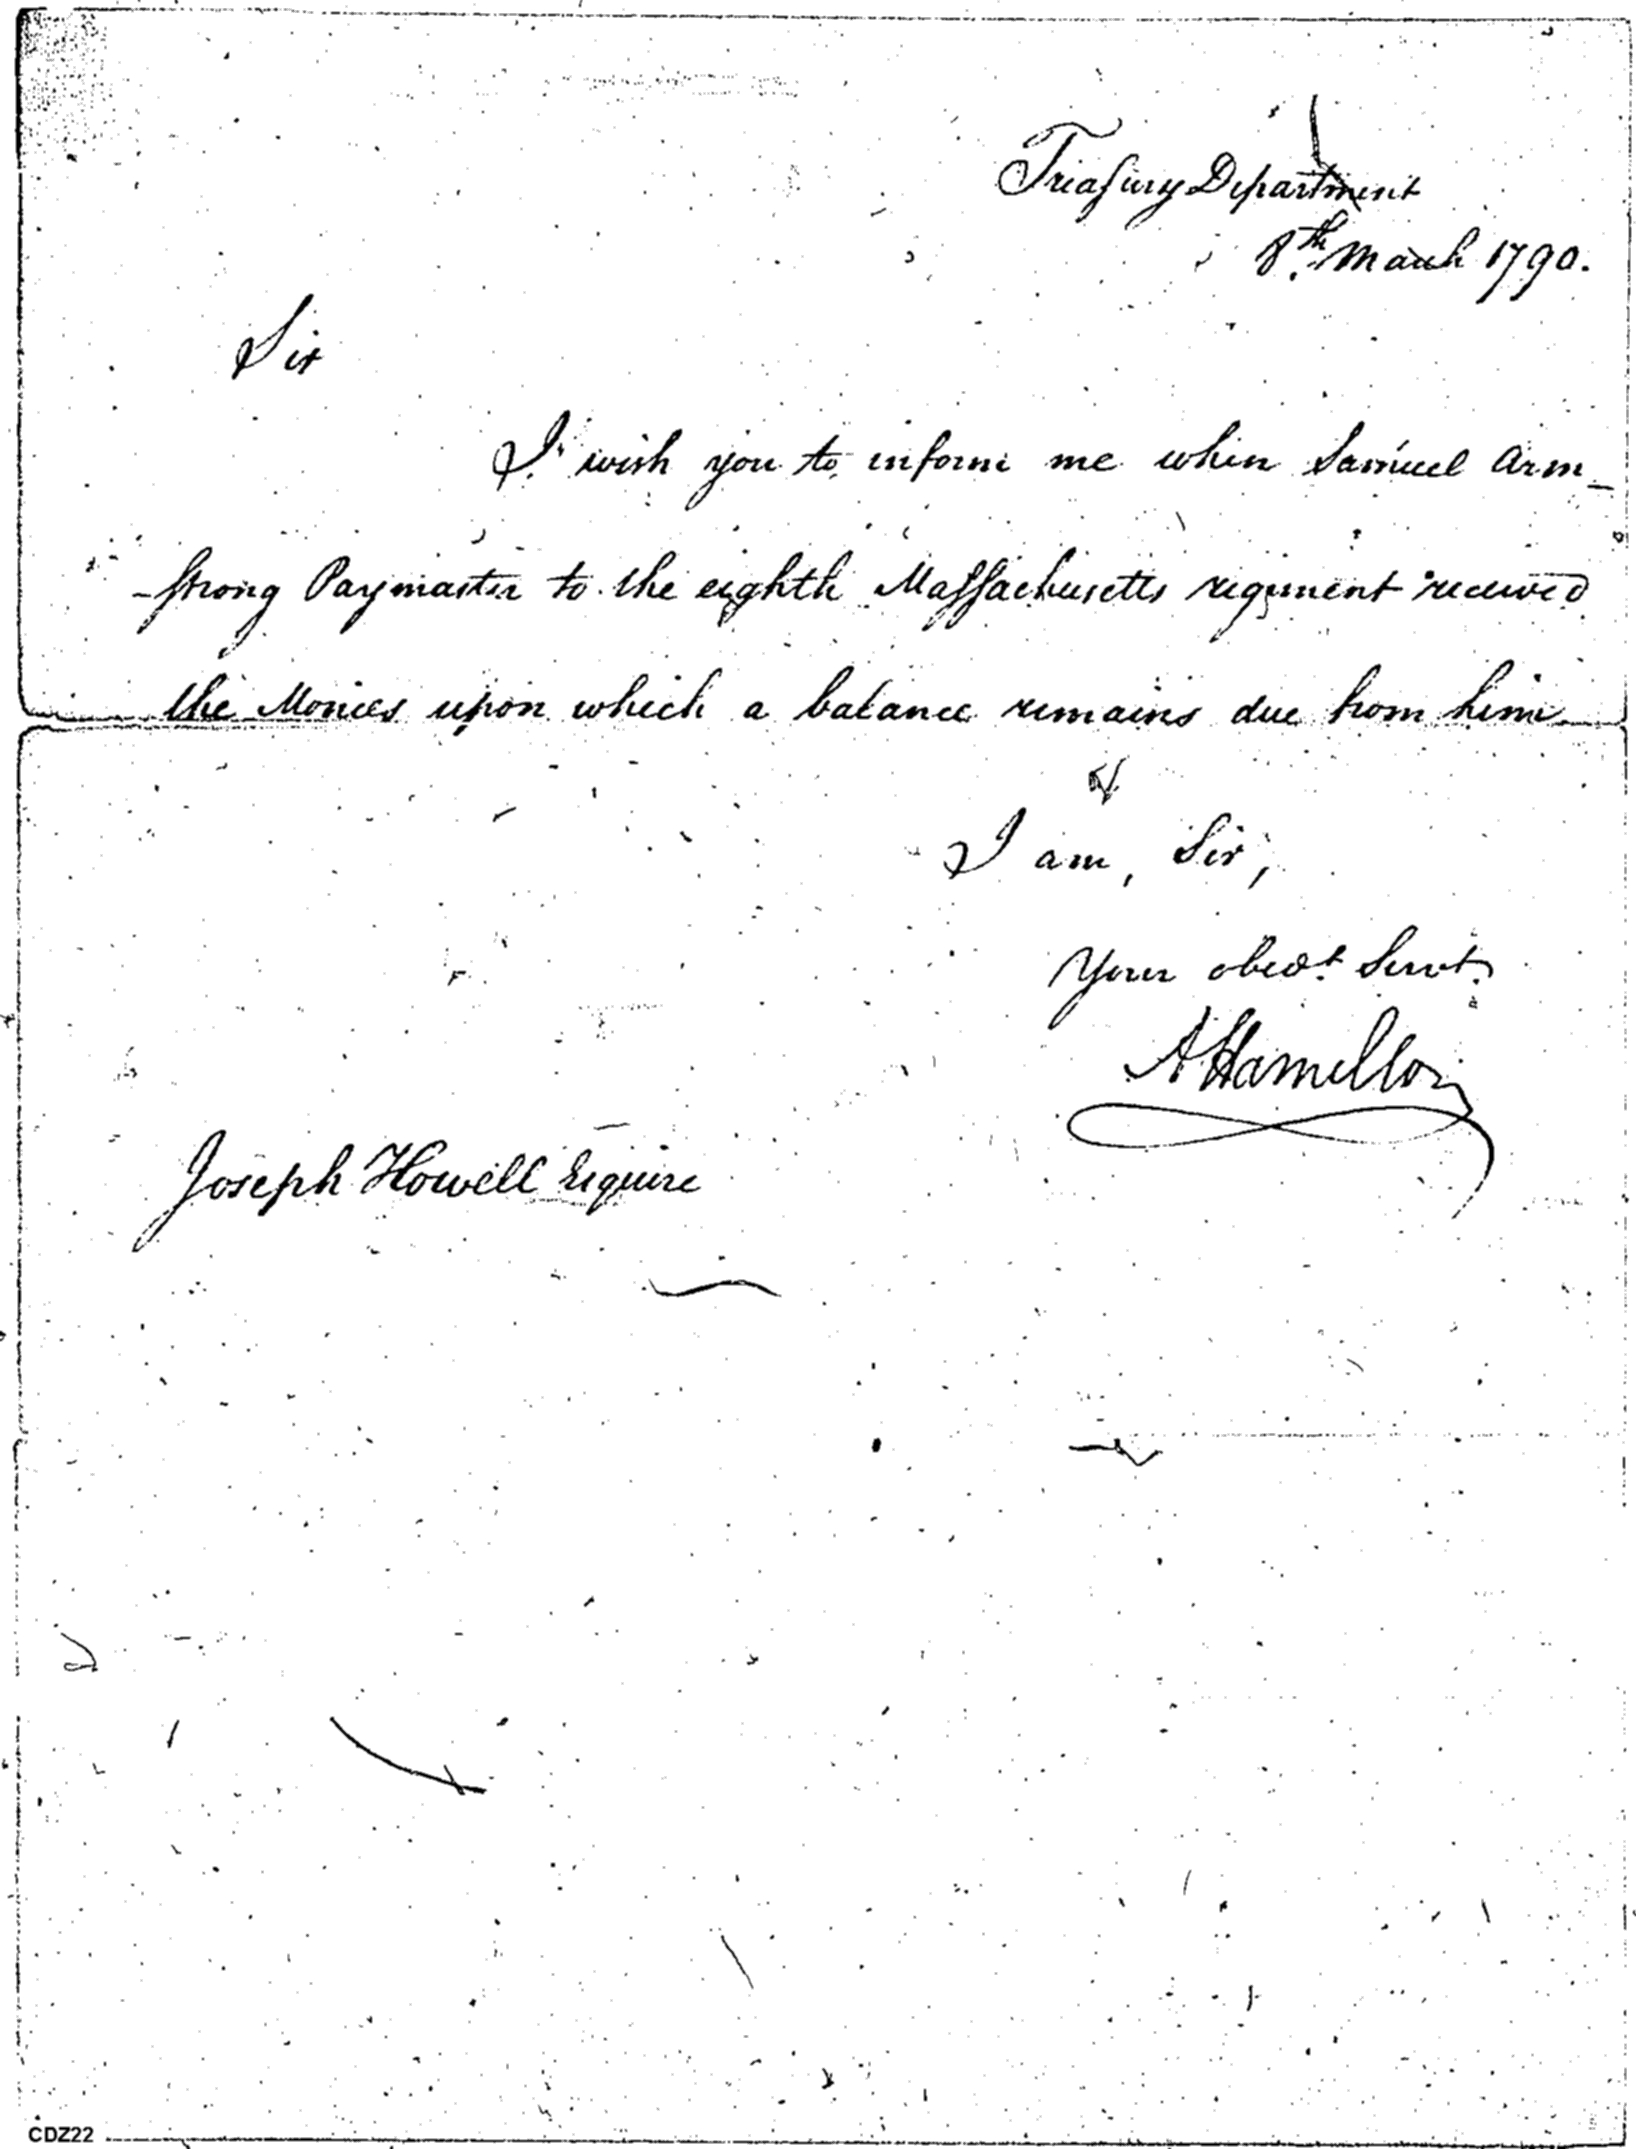 Treasury Department
8th. March 1790.
Sir
I wish you to inform me when Samuel Arm_
-strong Paymaster to the eighth Massachusetts regiment received
the Monies upon which a balance remains due from him
I am, Sir,
Your obedt. Servt.
A Hamilton
Joseph Howell Esquire
CDZ22